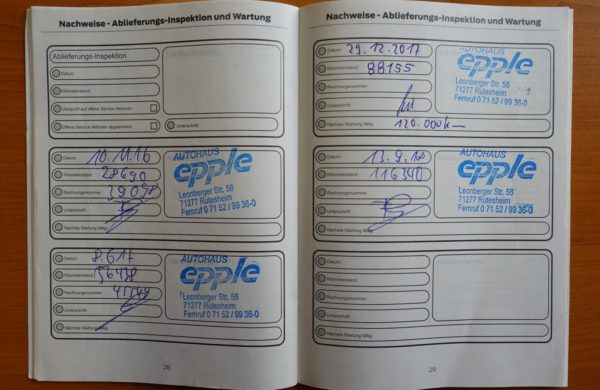 Nachweise - Ablieferungs-Inspektion und Wartung
Ablieferungs-Inspektion
Datum:
Kilometerstand:
Überprüft auf offene Service Aktionen:
Offene Service Aktionen abgearbeitet:
Unterschrift:
Datum:
Kilometerstand: 28690
Rechnungsnummer:
Unterschrift:
Nächste Wartung fällig:
AUTOHAUS
epple
Leonberger Str. 56
71277 Rutesheim
Fernruf 0 71 52 / 99 36-0
Datum: 8.6.17
Kilometerstand: 56438
Rechnungsnummer:
Unterschrift:
Nächste Wartung fällig:
AUTOHAUS
epple
Leonberger Str. 56
71277 Rutesheim
Fernruf 0 71 52 / 99 36-0
28
Nachweise - Ablieferungs-Inspektion und Wartung
Datum: 29.12.2017
Kilometerstand: 88155
Rechnungsnummer:
Unterschrift:
Nächste Wartung fällig: 120.000k
AUTOHAUS
epple
Leonberger Str. 56
71277 Rutesheim
Fernruf 0 71 52 / 99 36-0
Datum: 13.9.18
Kilometerstand: 116340
Rechnungsnummer:
Unterschrift:
Nächste Wartung fällig:
AUTOHAUS
epple
Leonberger Str. 56
71277 Rutesheim
Fernruf 0 71 52 / 99 36-0
Datum:
Kilometerstand:
Rechnungsnummer:
Unterschrift:
Nächste Wartung fällig:
29